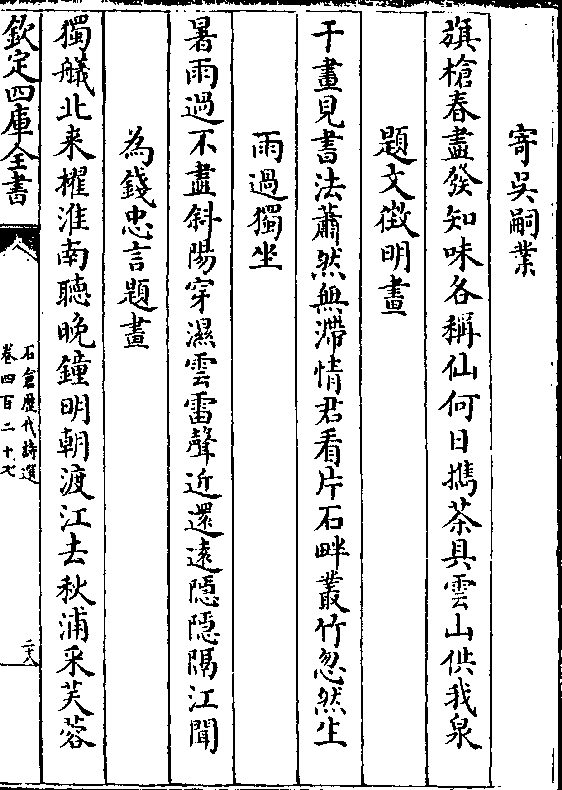 寄吳嗣業
旗槍春盡發知味各稱仙何日攜茶具雲山供我泉
題文徵明畫
干畫見書法蕭然無滯情君看片石畔叢竹忽然生
雨過獨坐
暑雨過不盡斜陽穿濕雲雷聲近還遠隠隠隔江聞
為錢忠言題畫
獨艤北来櫂淮南聽晚鐘明朝渡江去秋浦采芙蓉
欽定四庫全書
石倉歷代詩選
卷四百二十七
二八